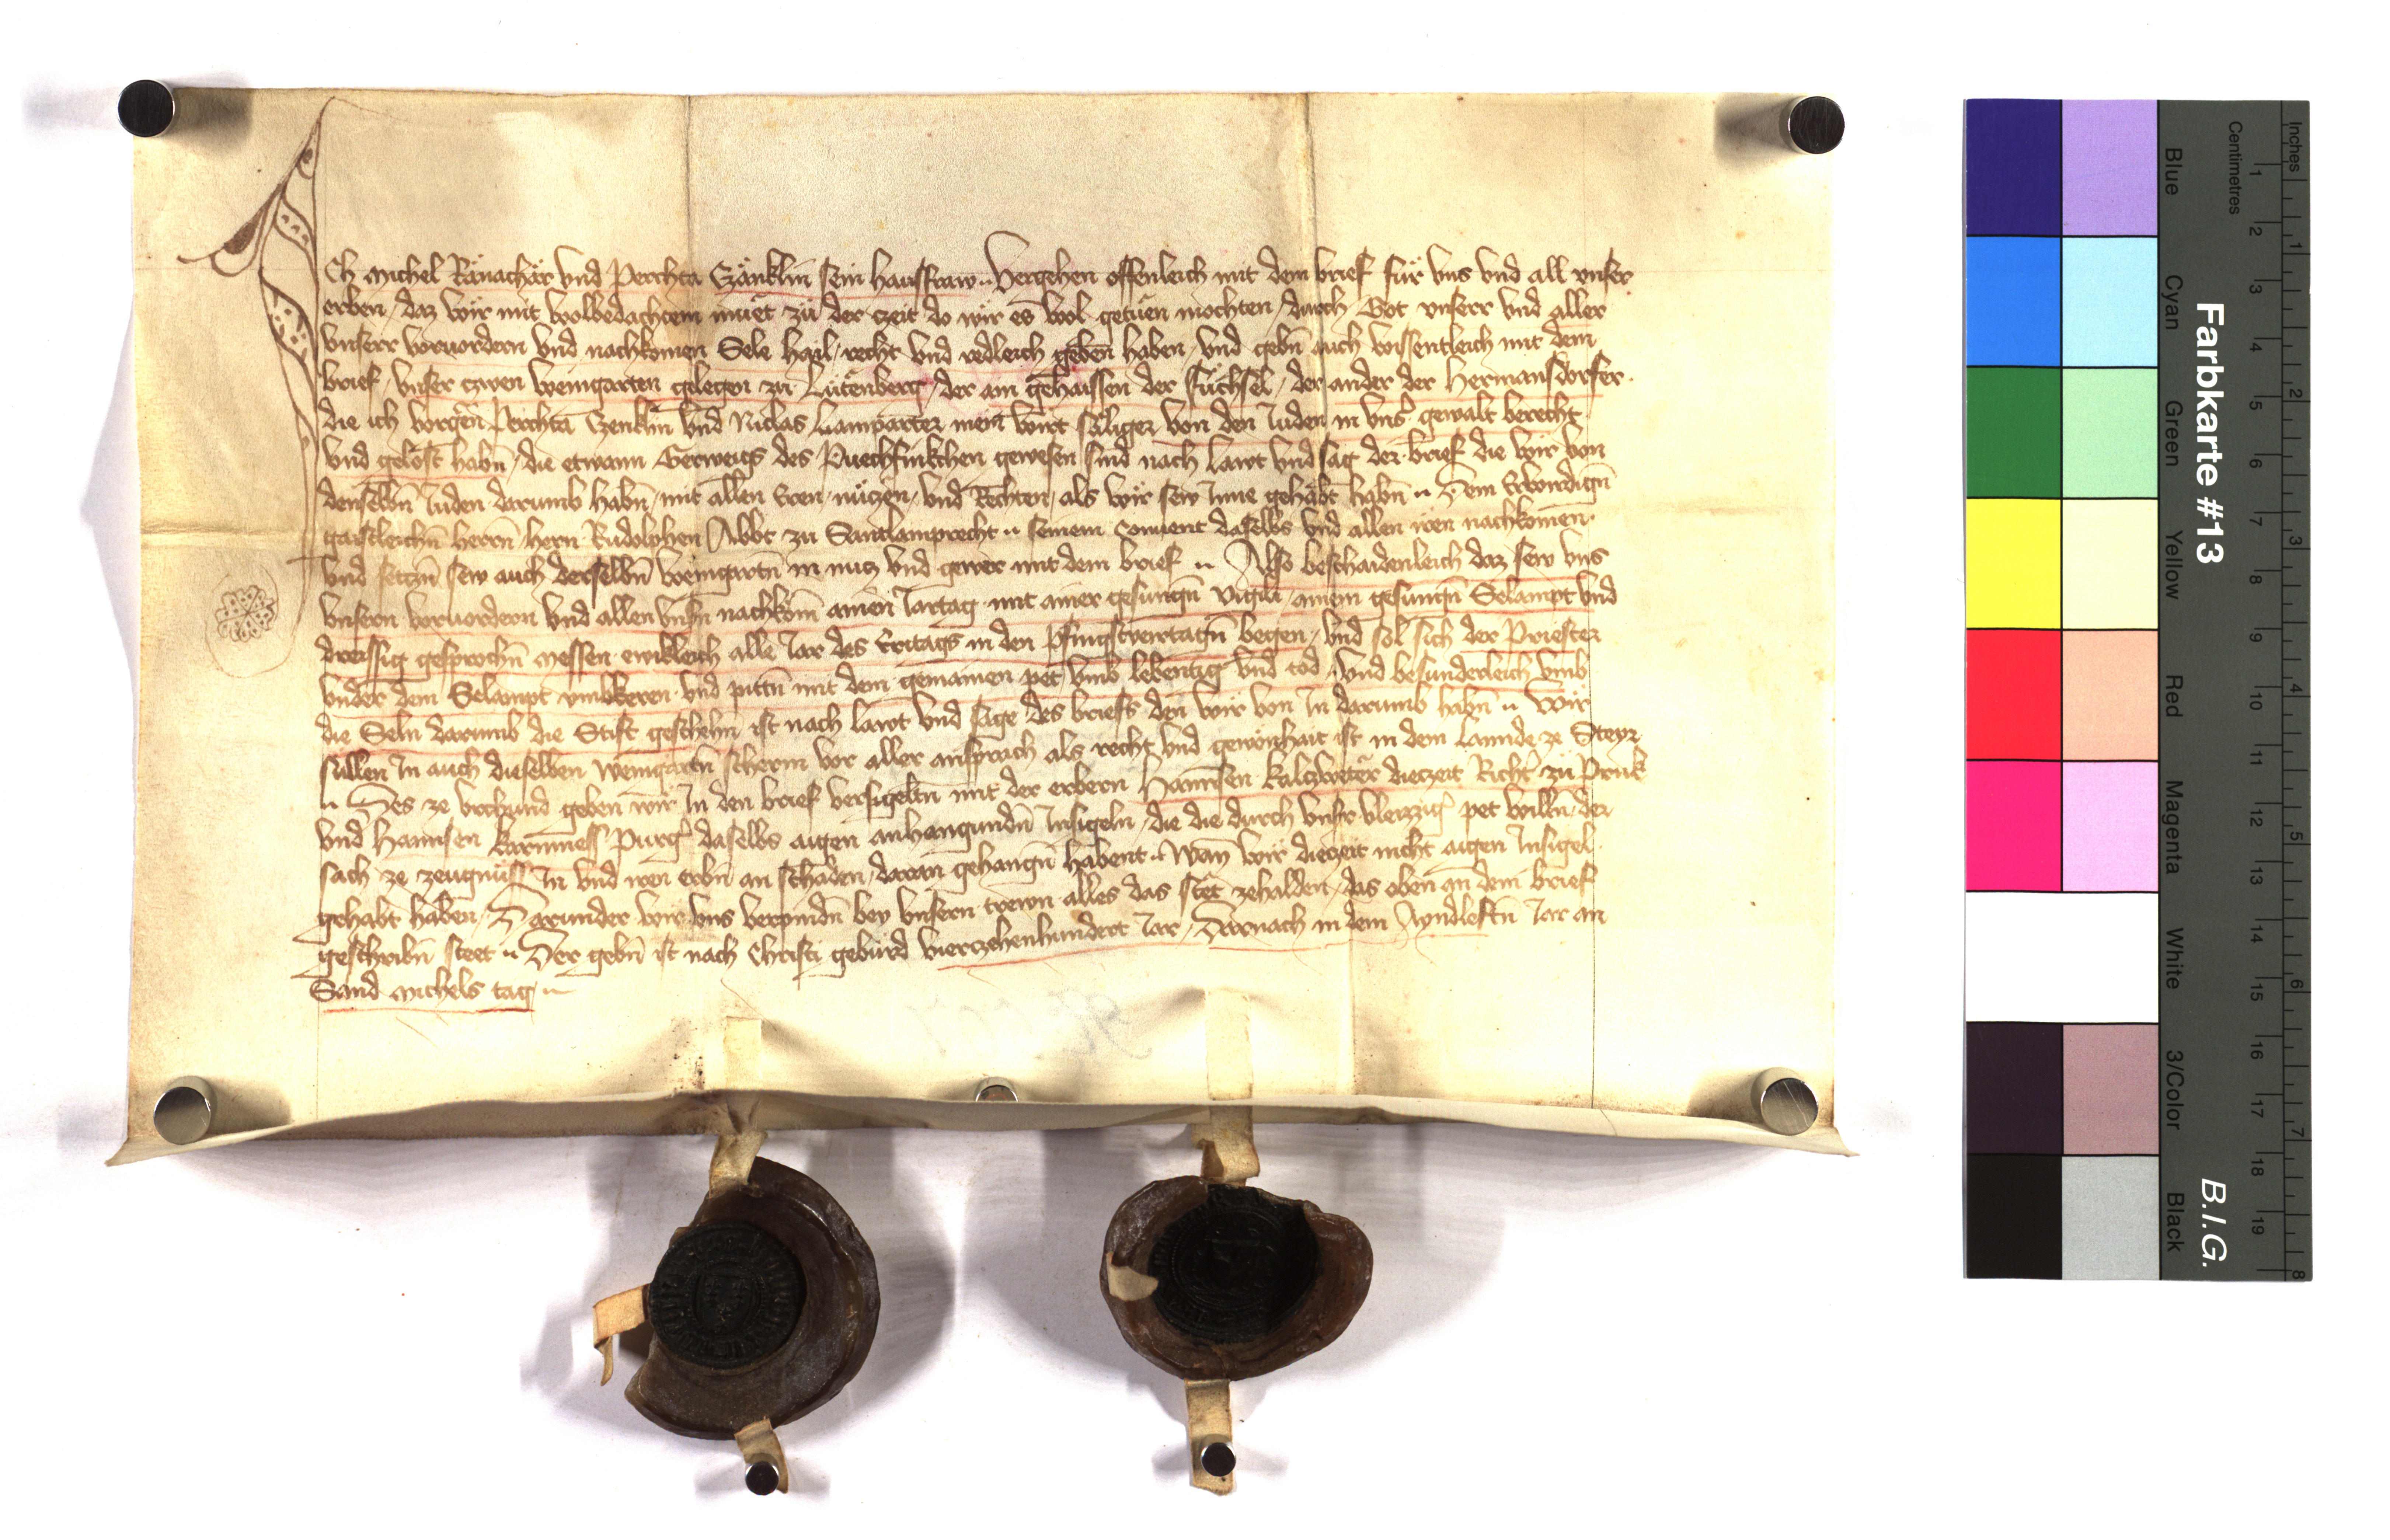 Ich Michel Ränachär vnd Perchta Czänklin sein hausfraw Vergehen offenleich mit dem brief für vns vnd all vnser
erben / daz wir mit wolbedachtem müet zü der czeit do wir es wol getüen mochten / durch Got vnserr vnd aller
vnserr voruordern vnd nachkomen Sele hail / recht vnd redleich geben haben / vnd gebn̄ auch wissentleich mit dem
brief / vnser czwen weingarten gelegen zu Lütenberg / der ain gehaissen der Füchsel / der ander der Hermansdorfer
die ich vorgen̄ Perchta Czenklin vnd Niclas Lamparter mein wirt säliger von den Juden in vnser gewalt bericht
vnd gelöst habn̄ / die etwann Gerweigs des Puechfinkchen gewesen sind nach lawt vnd sag der brief die wir von
denselbn̄ Juden darumb habn̄ / mit allen Eren / nüczen / vnd Rechten / als wir sew Inne gehabt habn̄ Dem Erwirdign̄
gaistleichn̄ herrn̄ / hern Rudolphen Abbt zu Santlamprecht seinem Conuent daselbs vnd allen iren nachkomen
vnd seczn̄ sew auch derselbn̄ weingartn̄ in nucz vnd gewer mit dem brief Also beschaidenleich daz sew vns
vnsern voruordern vnd allen vnsn̄ nachköm̄ ainen Jartag mit ainer gesungn̄ Vigili / ainem gesungn̄ Selampt vnd
dreissig gesprochn̄ Messen ewikleich alle Jar des Eritags in den Phingstveirtagn̄ begen / vnd sol sich der Priester
vnder dem Selampt vmbkeren vnd pittn̄ mit dem gemainen pet vmb lebentig vnd tod / vnd besunderleich vmb
die Seln darumb die Stift geschehn̄ ist nach lawt vnd sage des briefs den wir von In darumb habn̄ Wir
süllen In auch dieselben Weingartn̄ scherm vor aller ansprach als recht vnd gewonhait ist in dem Lannde ze Steyr
Des ze vrchund geben wir In den brief versigeltn̄ mit der erbern Hannsen Kalchreter dieczeit Richter zü Pruk
vnd Hannsen Karnmess Purger daselbs aigen anhangundn̄ Insigeln / die die durch vnser vleizziger pet willn̄ / der
sach ze zeugnüss In vnd iren erbn̄ an schaden / daran gehangn̄ habent Wan wir dieczeit nicht aigen Insigel
gehabt haben / Darunder wir vns verpindn̄ bey vnsern trewn alles das stët zehalden / das oben an dem brief
geschribn̄ steet Der gebn̄ ist nach Christi gebürd vierczehenhundert Jar / Darnach in dem Ayndleftn̄ Jar an
Sand Michels tag
Farbkarte #13
B.I.G.
Inches
1 2 3 4 5 6 7 8
Centimetres
1 2 3 4 5 6 7 8 9 10 11 12 13 14 15 16 17 18 19
Blue
Cyan
Green
Yellow
Red
Magenta
White
3/Color
Black